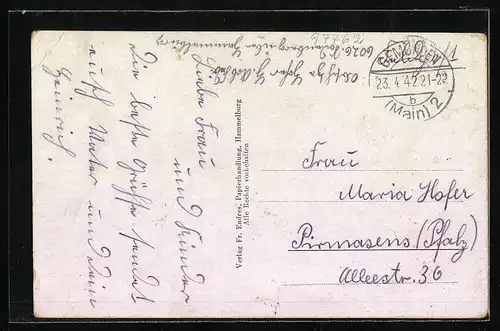 Liebe Frau
und Kinder
die beste Grüße sendet
euch Vater und dein
Heinrich.
Verlag Fr. Endres, Papierhandlung, Hammelburg
Alle Rechte vorbehalten
GEMÜNDEN
23.4.42.21-22
b
(Main) 2
Frau
Maria Hofer
Pirmasens (Pfalz)
Alleestr. 36